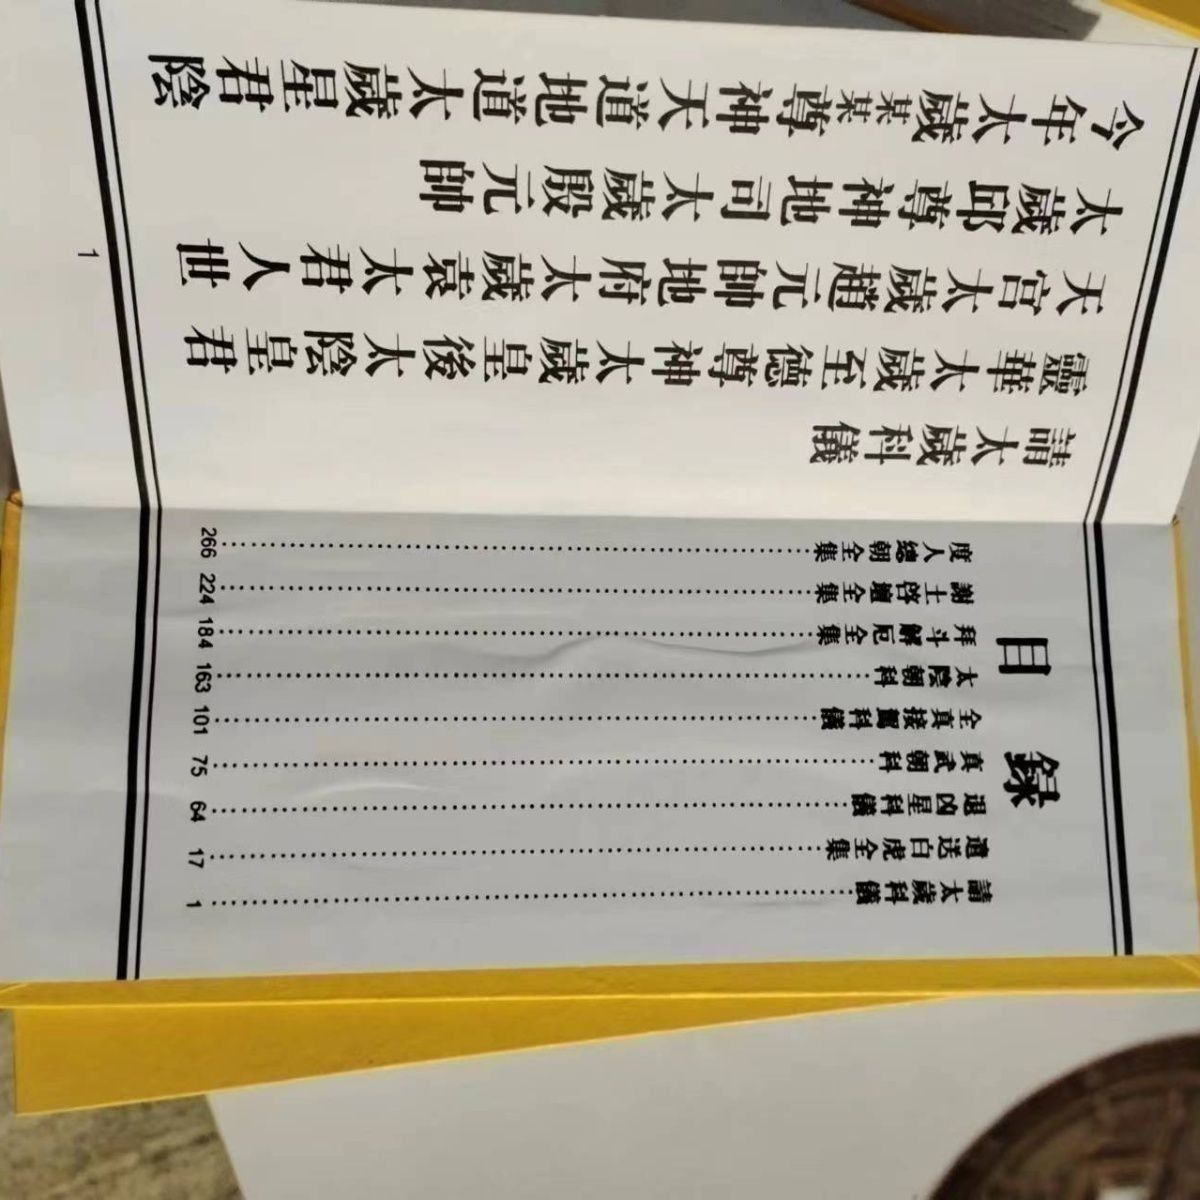 目錄
請太歲科儀……1
遣送白虎全集……17
退凶星科儀……64
真武朝科……75
全真接駕科儀……101
太陰朝科……163
拜斗解厄全集……184
謝土啓壇全集……224
度人總朝全集……266
請太歲科儀
靈華太歲至德尊神太歲皇後太陰皇君
天宫太歲趙元帥地府太歲袁太君人世
太歲邱尊神地司太歲殷元帥
今年太歲某某尊神天道地道太歲星君陰
1